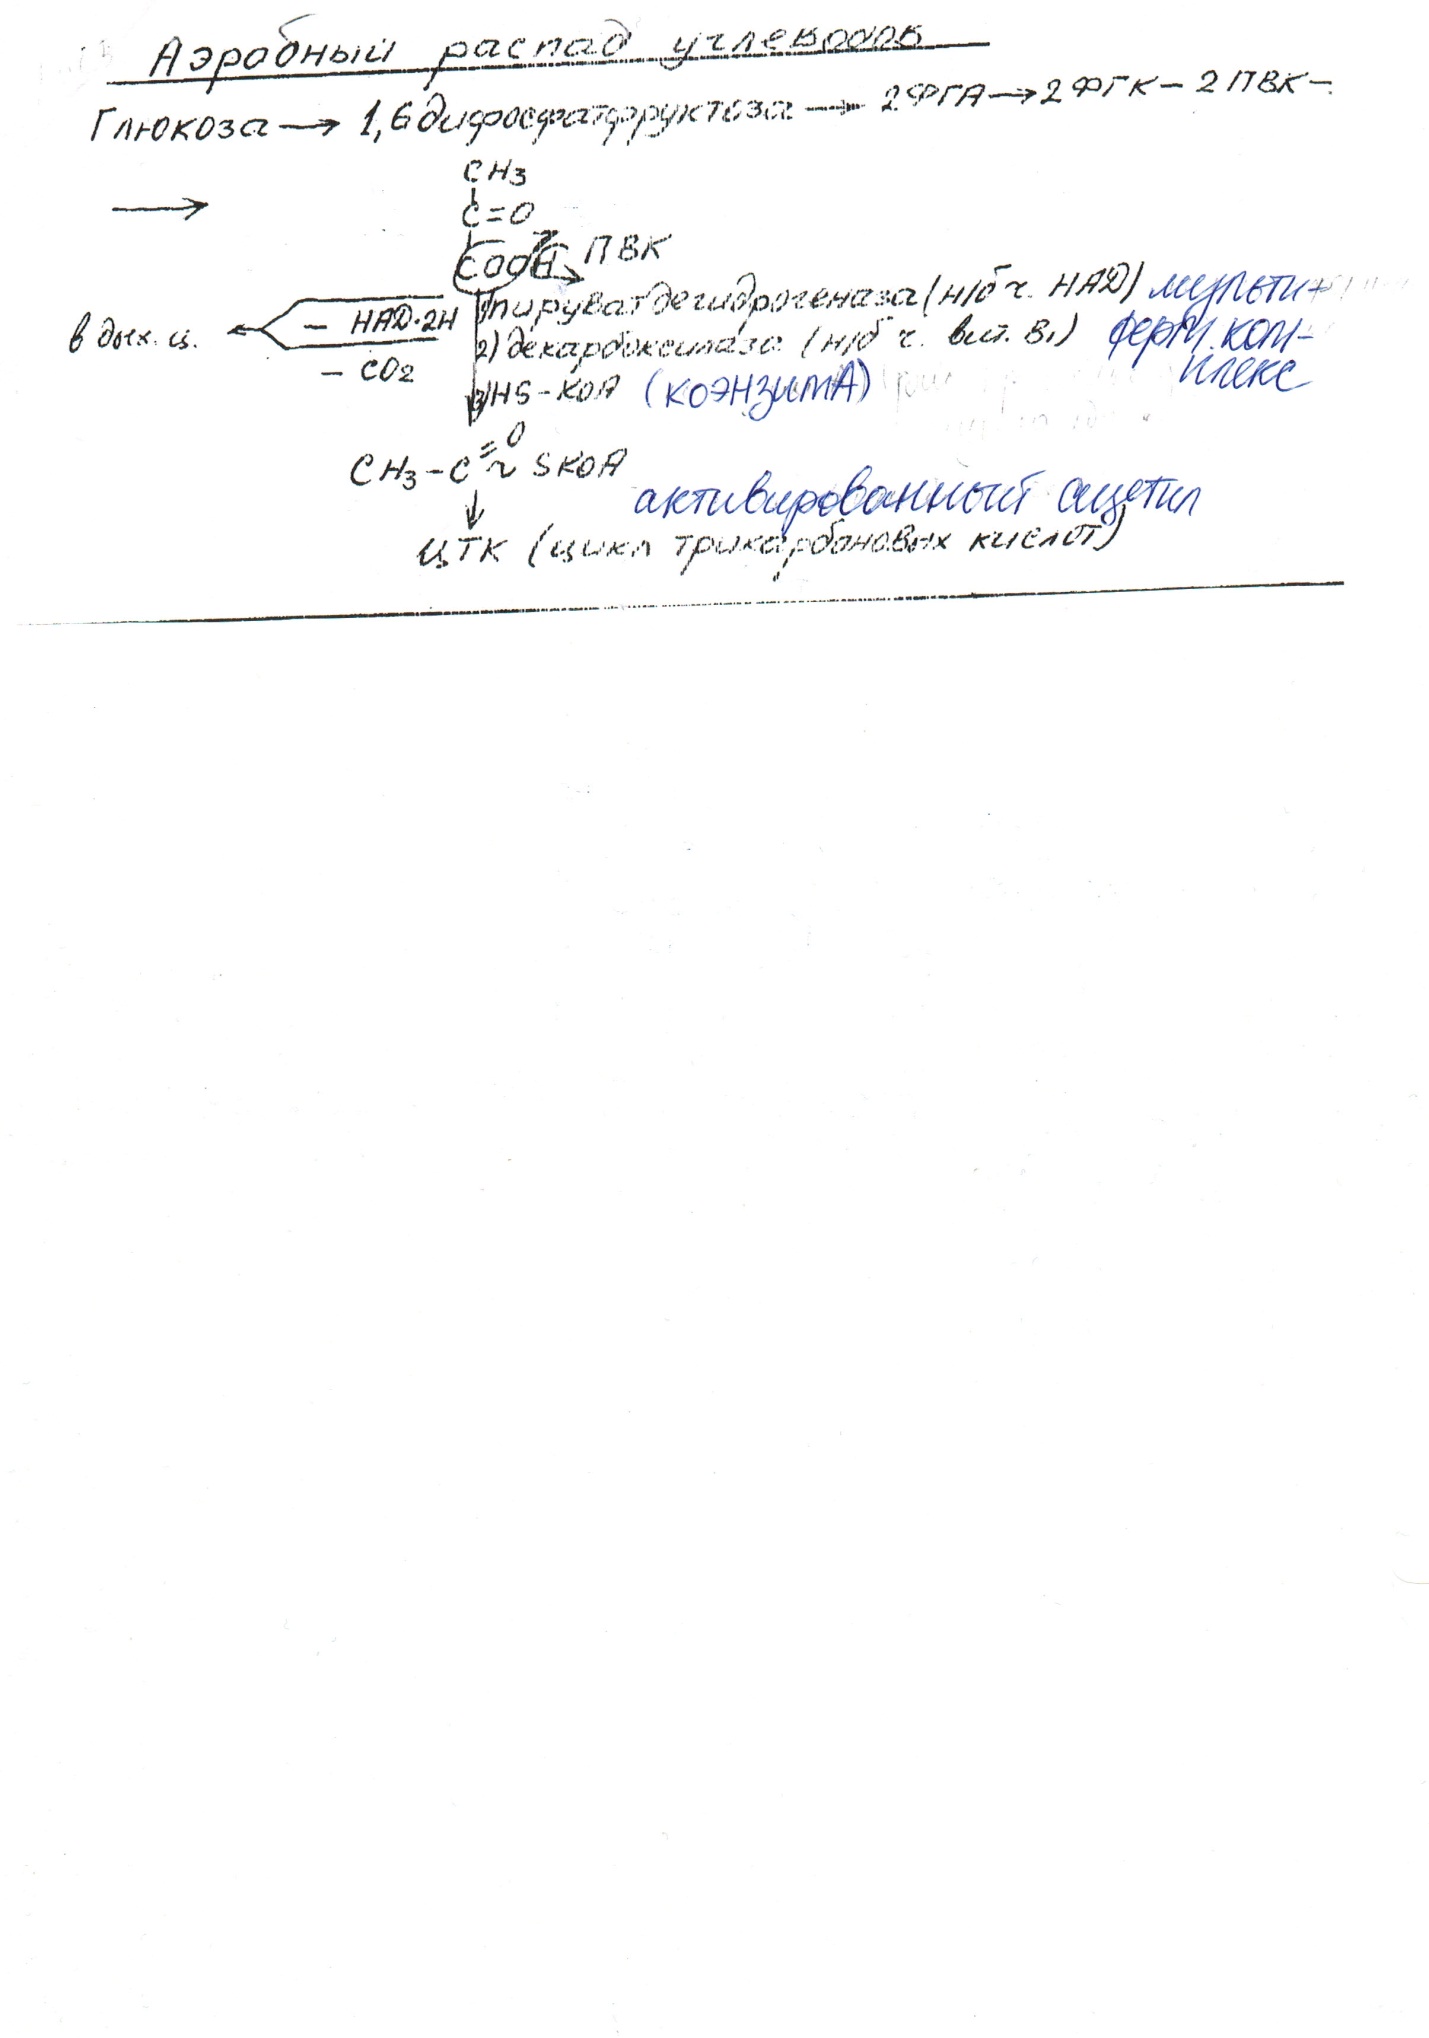 Аэробный распад углеводов
Глюкоза → 1,6 дифосфатфруктоза → 2ФГА → 2ФГК – 2ПВК –
→
CH3
C=O
COOH ПВК
1) пируватдегидрогеназа (н/б ч. НАД) мульти-
в дых. ц. ← – НАД·2Н
2) декарбоксилаза (н/б ч. вит. В1) ферм. ком-
– CO2
3) HS-КоА (коэнзим А) плекс
CH3–C=O ~ SКоА
активированный ацетил
↓
ЦТК (цикл трикарбоновых кислот)